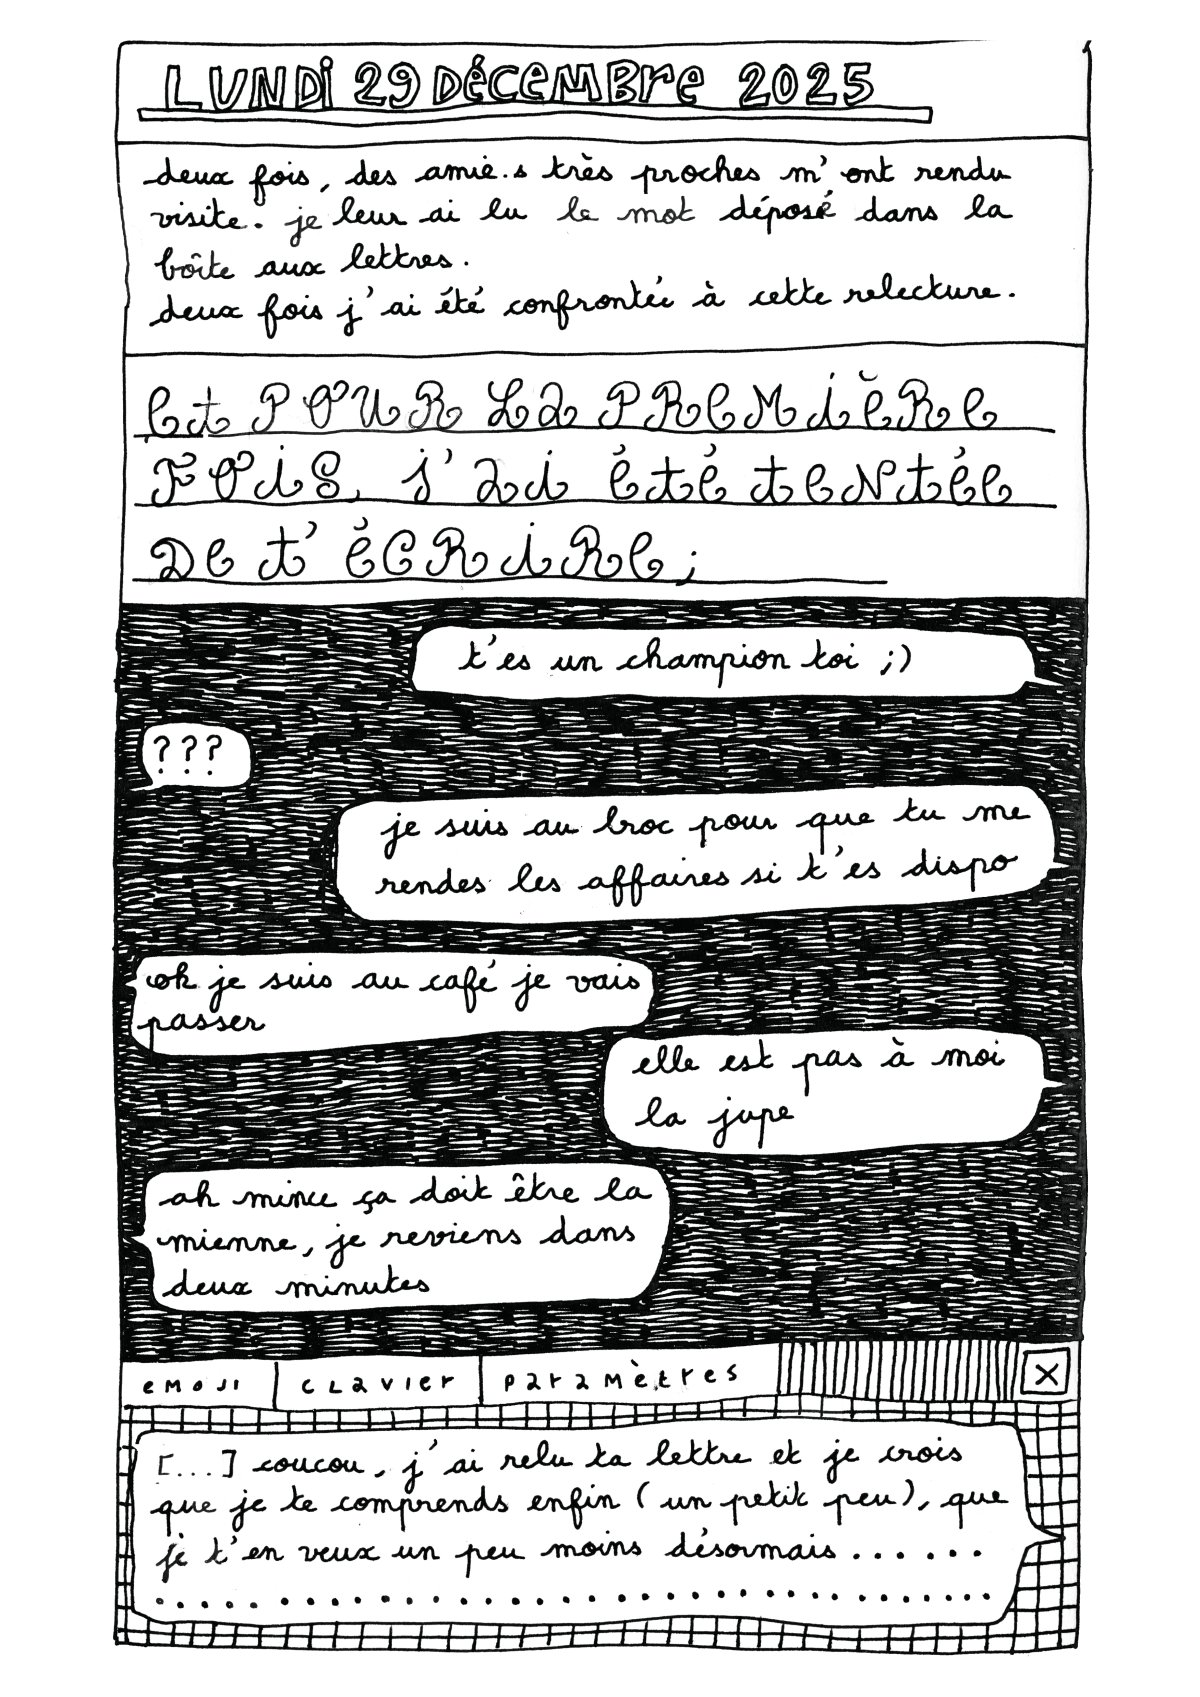 LUNDi 29 DéCeMBre 2025
deux fois, des amie.s très proches m'ont rendu
visite. je leur ai lu le mot déposé dans la
boîte aux lettres.
deux fois j'ai été confrontée à cette relecture.
et POUR La PReMièRe
FOiS, j'ai été teNtée
De t'éCRiRe ;
t'es un champion toi ;)
???
je suis au broc pour que tu me
rendes les affaires si t'es dispo
ok je suis au café je vais
passer
elle est pas à moi
la jupe
ah mince ça doit être la
mienne, je reviens dans
deux minutes
eMOJI CLaVIer ParaMèTreS X
[...] coucou, j'ai relu ta lettre et je crois
que je te comprends enfin (un petit peu), que
je t'en veux un peu moins désormais . . . . . .
. . . . . . . . . . . . . . . . . . . . . . . . . . . . . . . . . . . . . .